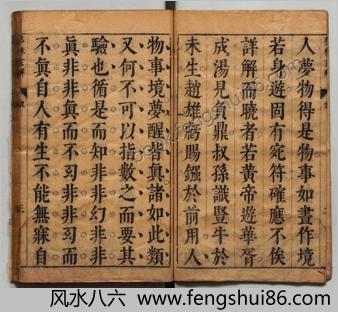 人夢物得是物事如晝作境
若身遊固有宛符確應不俟
詳解而曉者若黃帝遊華胥
成湯見負鼎叔孫識豎牛於
未生趙雄賜於前用人
物事境夢醒皆眞諸如此類
又何不可以指數之而要其
驗也循是而知非非幻非非
眞非非眞而不幻非非幻而
不眞自人有生不能無寐自
风水八六：www.fengshui86.com